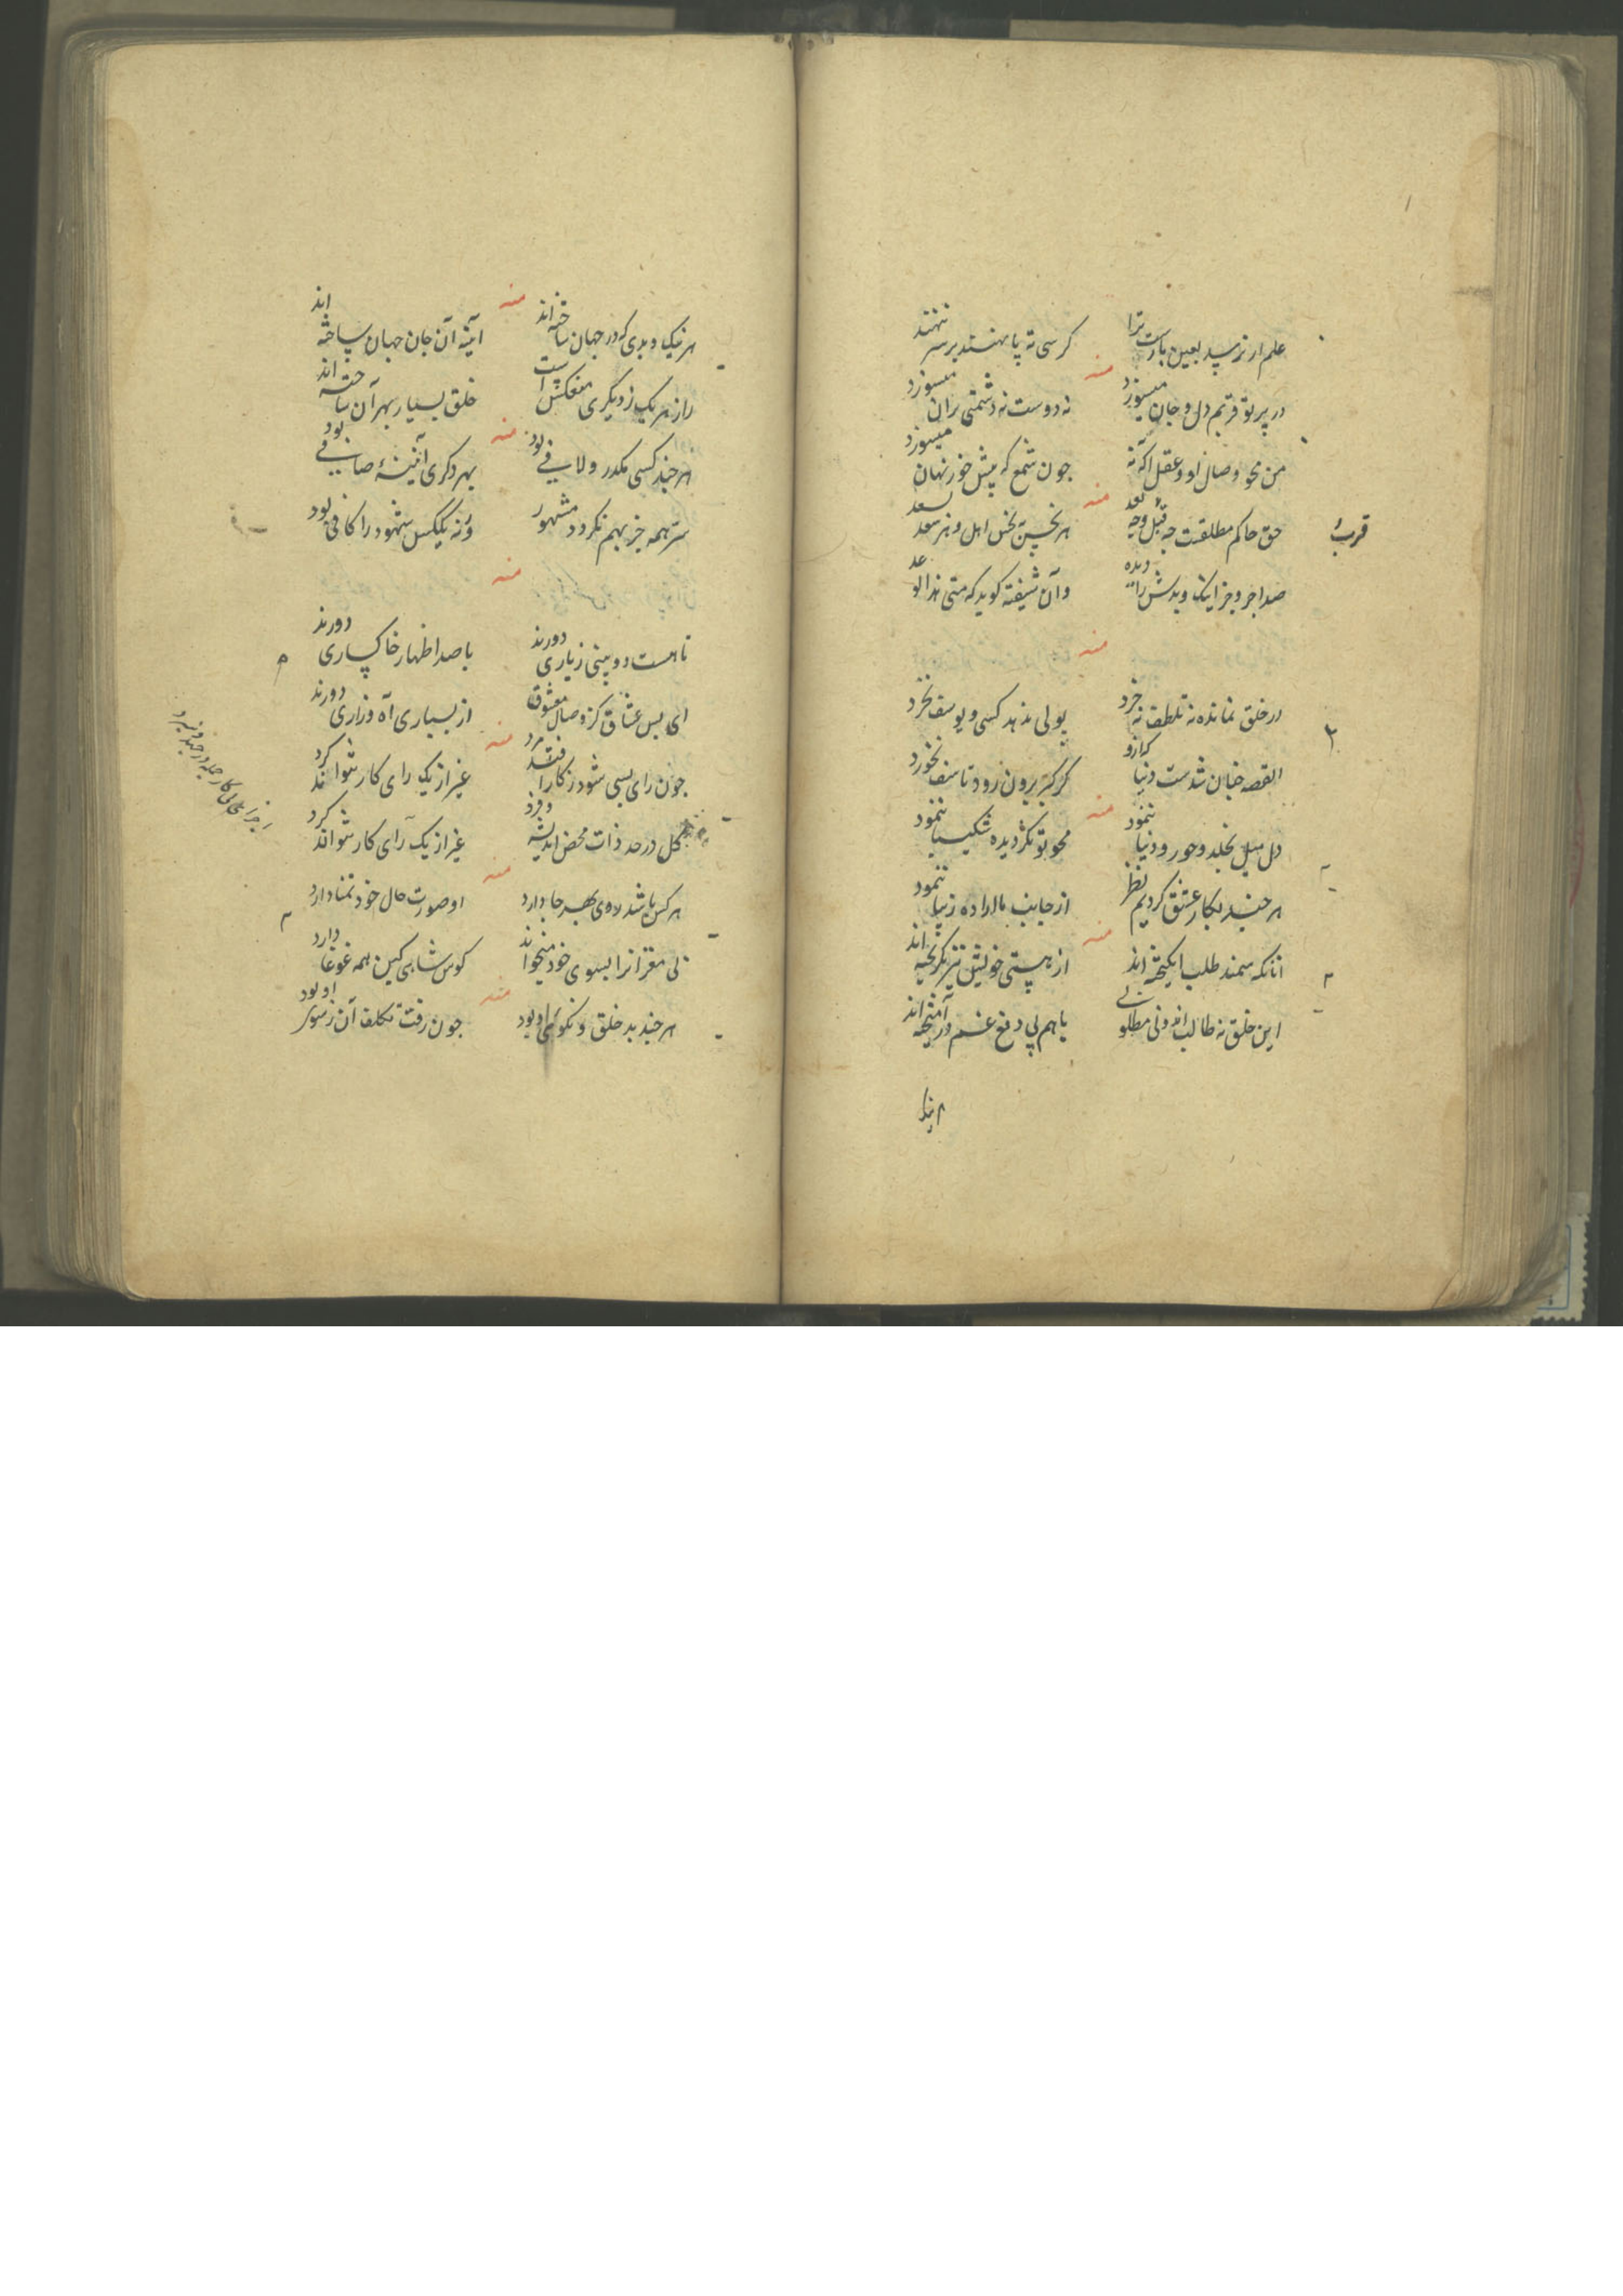 علم ار نرسد بعین بارست ترا کرسی ته پا نهند بر سر ننهند
منه
در پرتو قربتم دل و جان میسوزد نه دوست نه دشمنی بران میسوزد
من محو وصال او و عقل آگه نه چون شمع که پیش خور نهان میسوزد
منه
حق حاکم مطلقست چه قبل و چه بعد
قرب
صد اجر و جزا یک و بدش را دیده وان شیفته کوید که متی هذا الوعد
منه
در خلق نمانده نه تلطف نه خرد پولی ندهد کسی و یوسف نخرد
القصه چنان شدست دنیا که ازو کر کس برون رود تاسف نخورد
منه
دل میل بخلد و حور و دنیا ننمود محو تو نکردیده شکیبا ننمود
هر چند بکار عشق کردیم نظر از جانب ما اراده زیبا ننمود
منه
آنانکه سمند طلب انکیخته اند از هستی خویشتن نیز بکریخته اند
این خلق نه طالب اند و نی مطلوبی با هم پی دفع غم در آمیخته اند
هر نیک و بدی که در جهان ساخته اند آیینه آن جان جهان ساخته اند
منه
راز هر یک ز دیکری منعکس است خلق بسیار بهر آن ساخته اند
هر چند کسی مکدر و لافی بود بهر دکری آئینهٔ صافی بود
منه
سرّ همه جز بهم نکردد مشهور ورنه یککس شهود را کافی بود
منه
تا هست دو بینی ز یاری دورند با صد اظهار خاکساری دورند
ای بس عشاق کز وصال معشوق از بسیاری آه و زاری دورند
منه
چون رای بسی شود ز کار افتد مرد غیر از یک رای کار نتواند کرد
کل در حد ذات محض اندیشه و فرد غیر از یک رای کار نتواند کرد
منه
هر کس باشد بهر جا دارد او صورت حال خود تمنا دارد
نی مغز آنرا بسوی خود میخواند کوس شاهی کین همه غوغا دارد
منه
هر چند بد خلق و نکوی او بود چون رفت تکلف آن ز سوی او بود